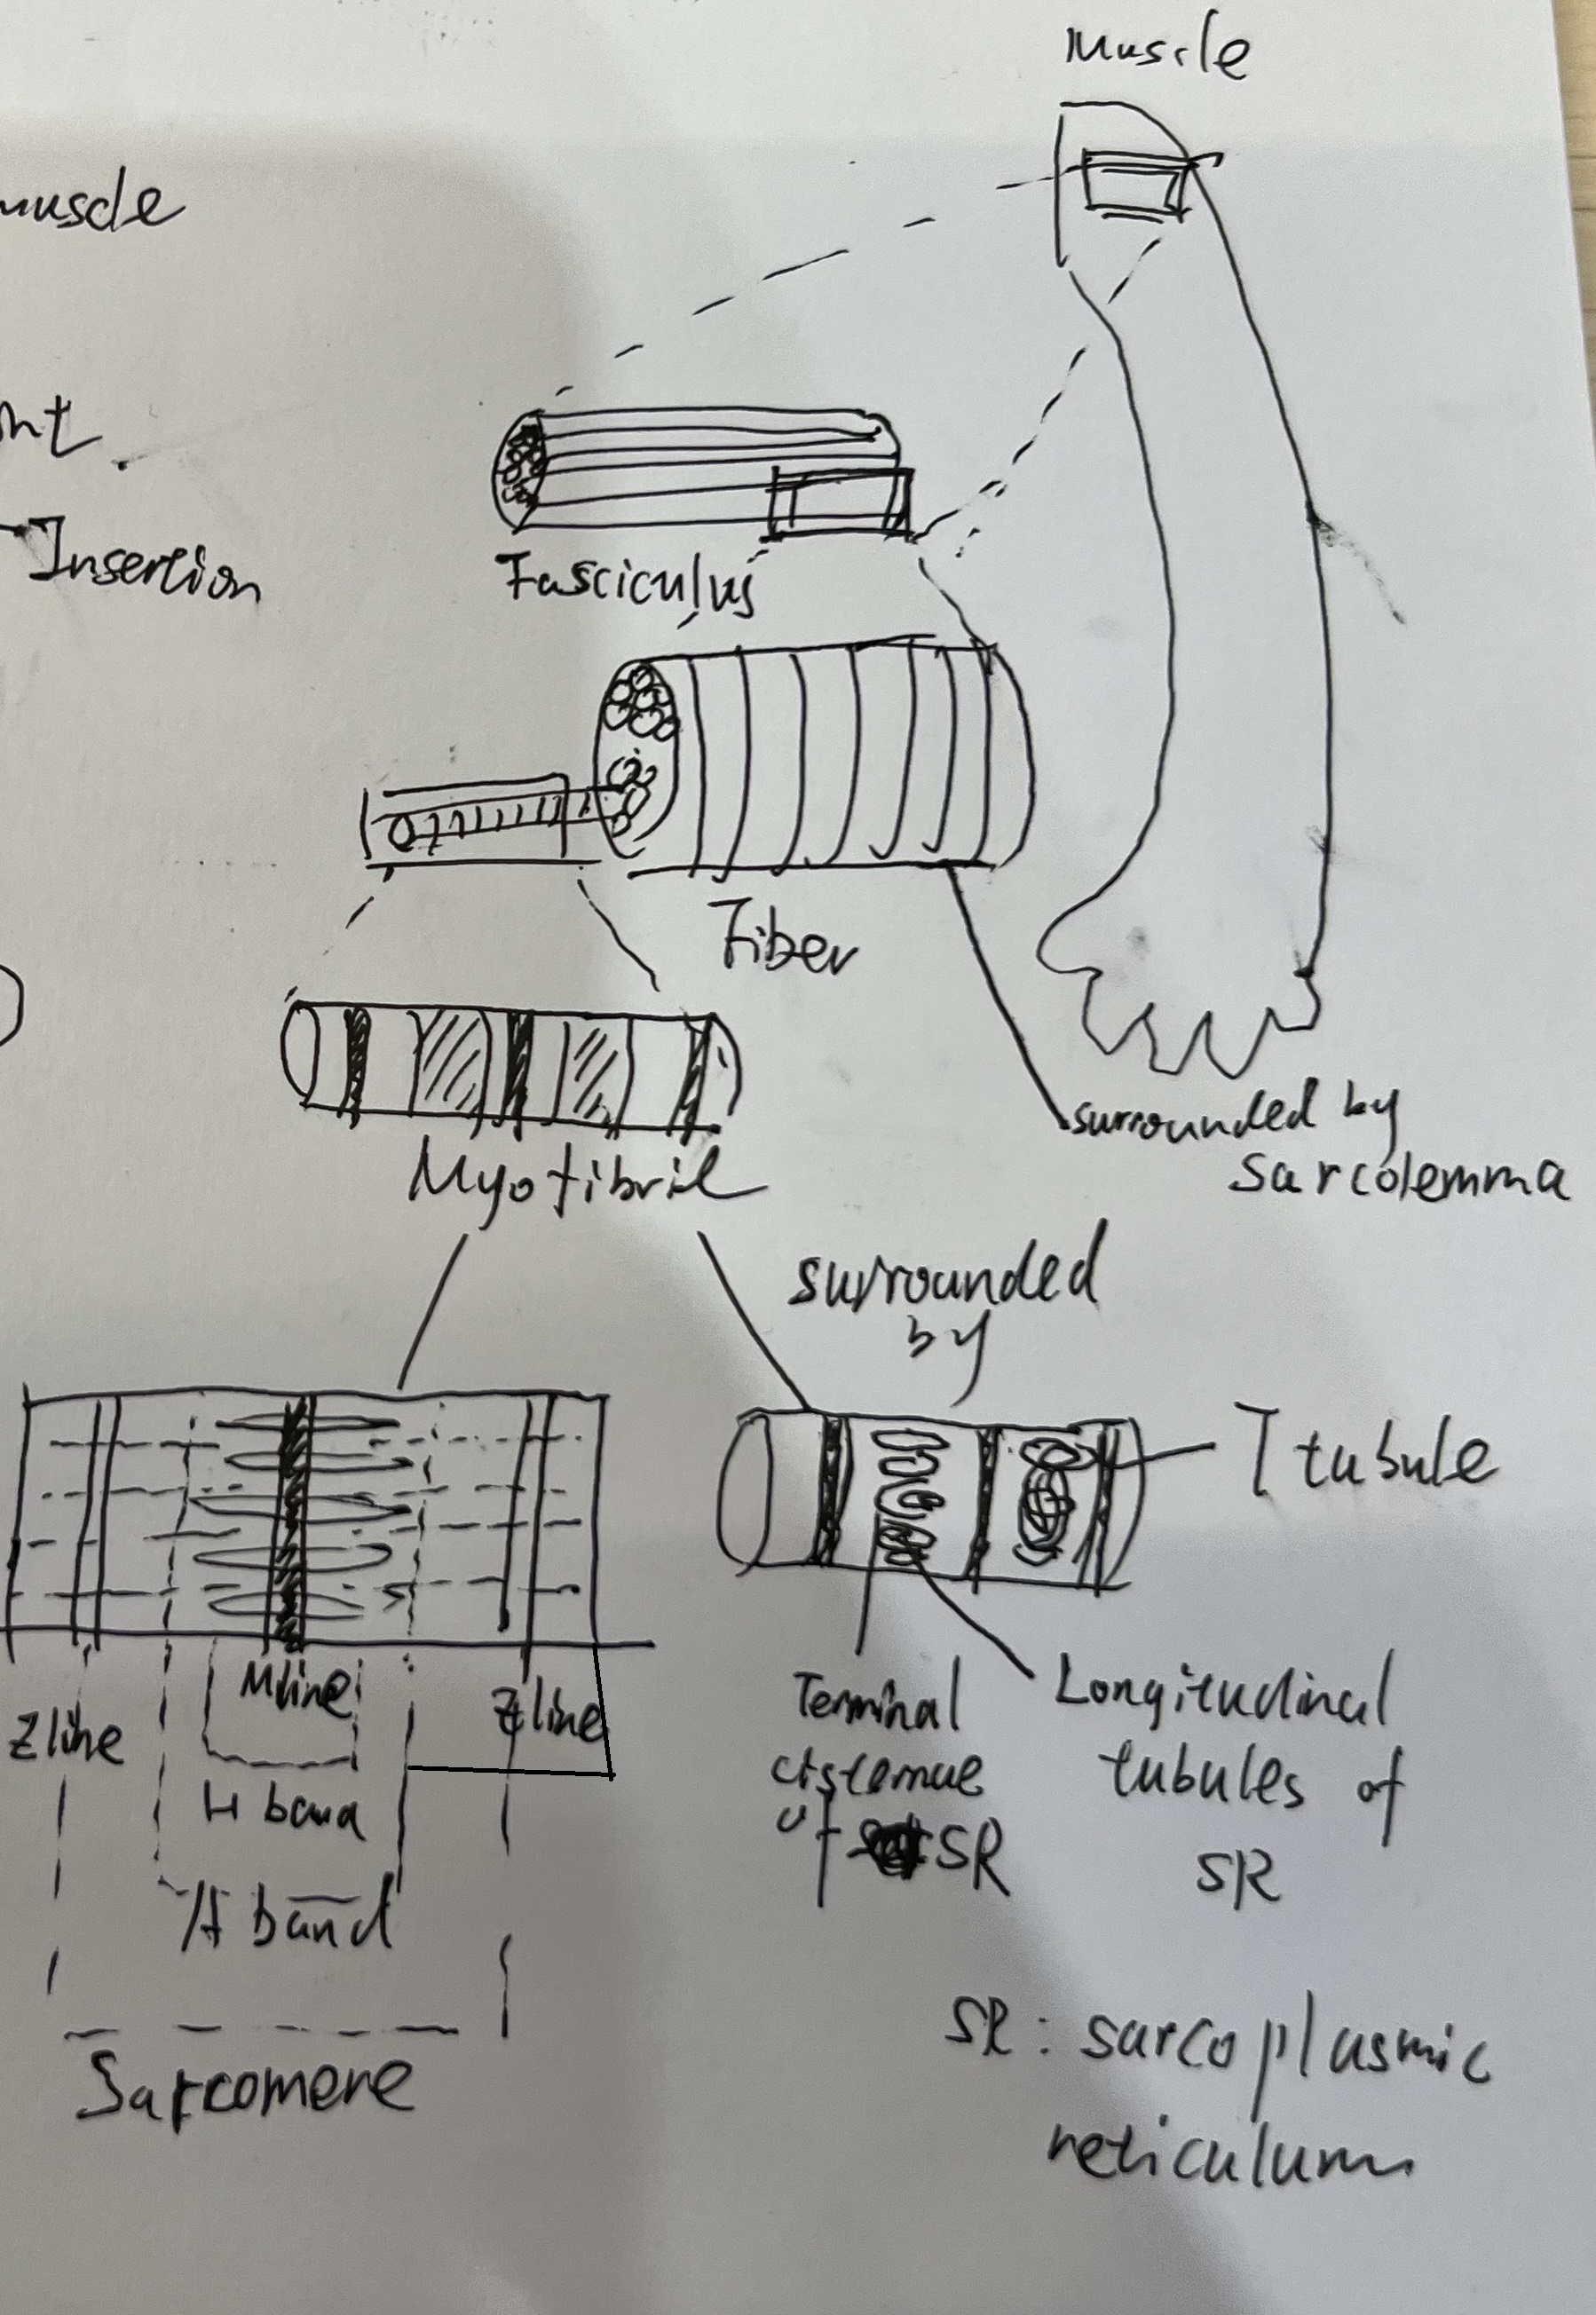 Muscle
muscle
Insertion
Fasciculus
Fiber
surrounded by
Sarcolemma
Myofibril
surrounded
by
T tubule
Z line
M line
Z line
H band
A band
Sarcomere
Terminal
cisternae
of SR
Longitudinal
tubules of
SR
SR: sarcoplasmic
reticulum